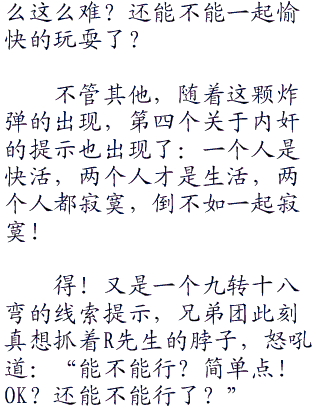 么这么难？还能不能一起愉
快的玩耍了？
不管其他，随着这颗炸
弹的出现，第四个关于内奸
的提示也出现了：一个人是
快活，两个人才是生活，两
个人都寂寞，倒不如一起寂
寞！
得！又是一个九转十八
弯的线索提示，兄弟团此刻
真想抓着R先生的脖子，怒吼
道：“能不能行？简单点！
OK？还能不能行了？”